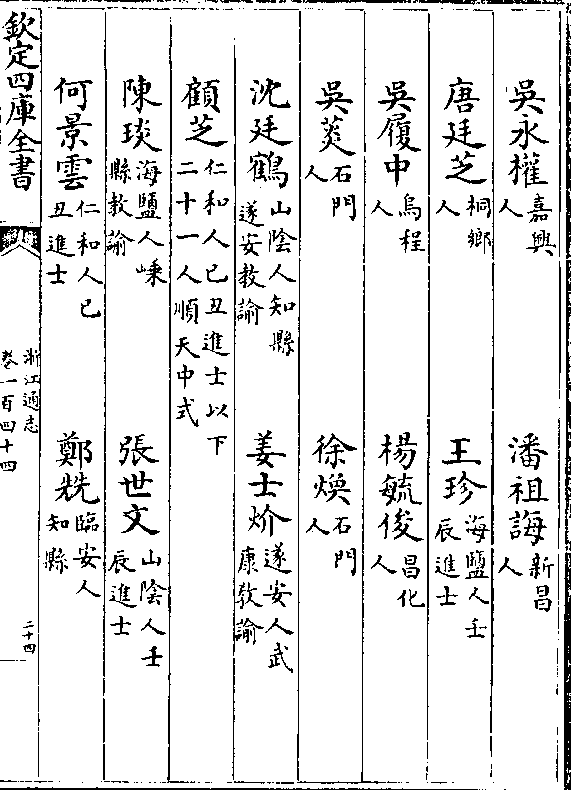 吳永權嘉興人
潘祖誨新昌人
唐廷芝桐鄉人
王珍海鹽人壬辰進士
吳履中烏程人
楊毓俊昌化人
吳茭石門人
徐煥石門人
沈廷鶴山陰人知縣遂安教諭
姜士炌遂安人武康教諭
顧芝仁和人己丑進士以下二十一人順天中式
陳琰海鹽人嵊縣教諭
張世文山陰人壬辰進士
何景雲仁和人己丑進士
鄭兟臨安人知縣
欽定四庫全書
浙江通志
卷一百四十四
二十四